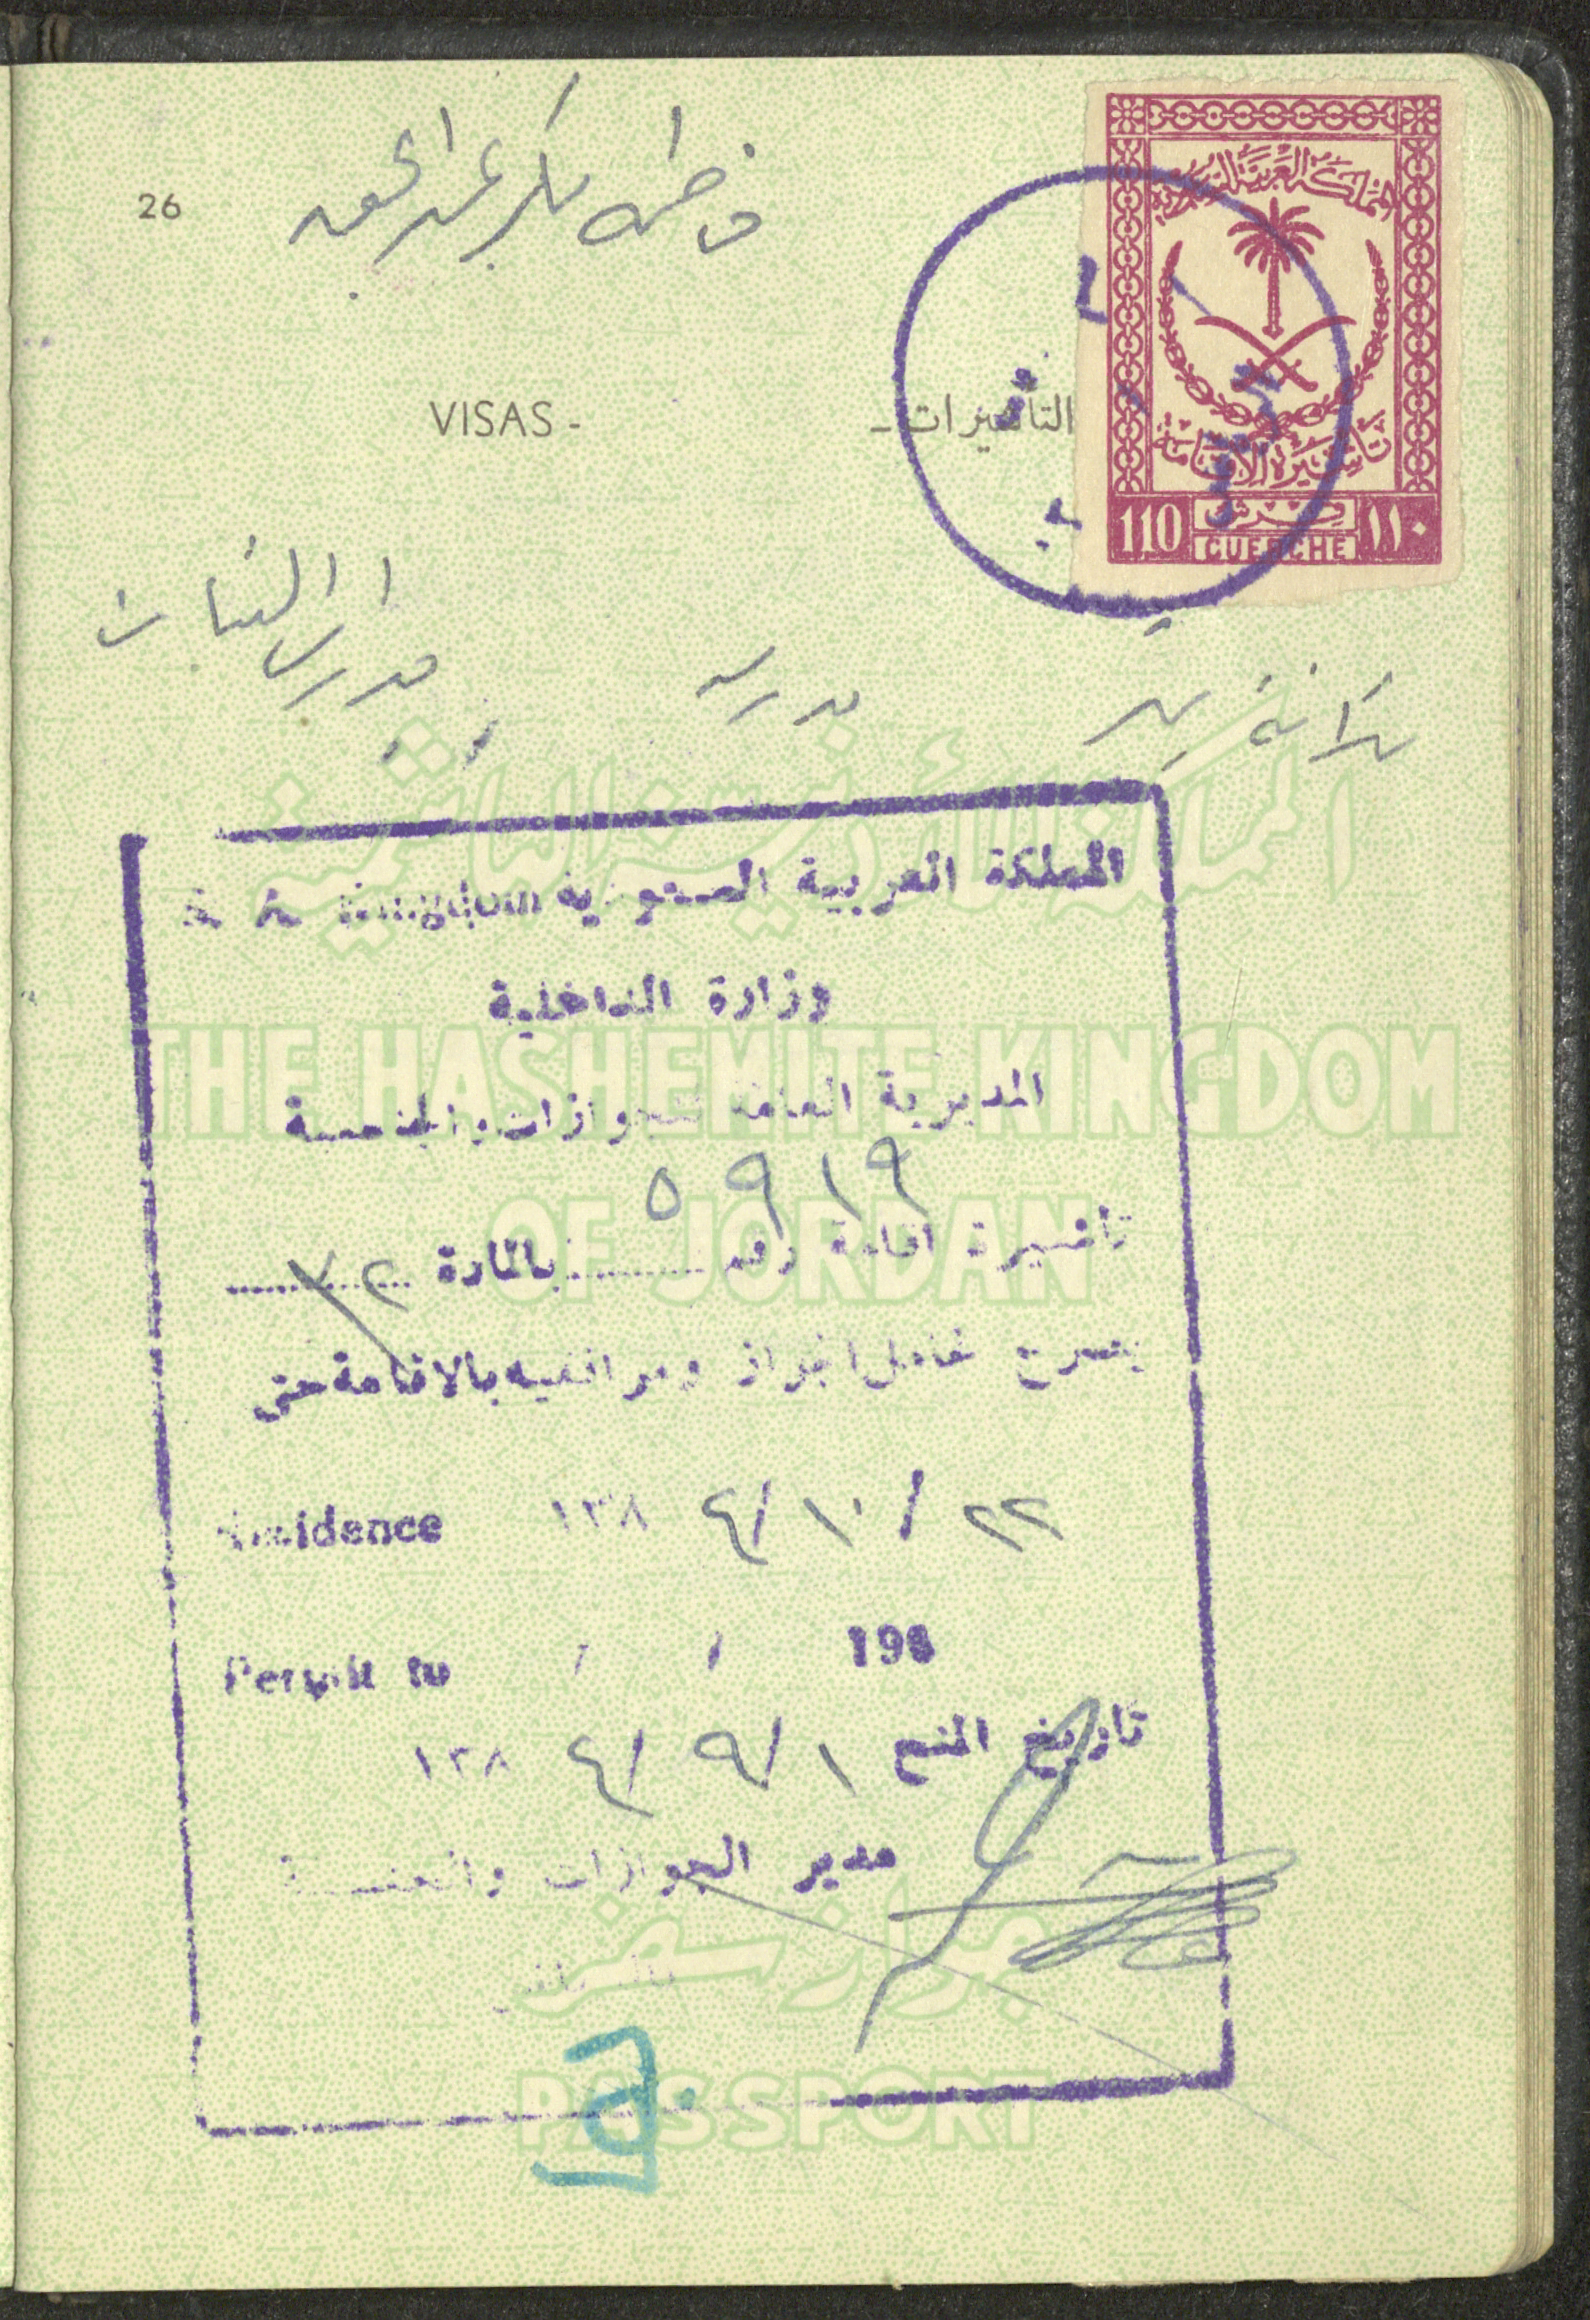 26
المملكة العربية السعودية
تأشيرة الاقامة
110 قرش ١١٠
GUERCHE
VISAS - التأشيرات -
مدارس البنات
مدرسة
المملكة الأردنية الهاشمية
المملكة العربية السعودية Kingdom
وزارة الداخلية
THE HASHEMITE KINGDOM
المديرية العامة للجوازات والجنسية
٥٩١٩
OF JORDAN
تأشيرة اقامة رقم بالمادة ٣٢
يصرح لحامل الجواز ومرافقيه بالاقامة حتى
Residence ٢٢/١٠/١٣٨٤
Permit to / / 196
تاريخ المنح ١/٩/١٣٨٤
مدير الجوازات والجنسية
جواز سفر
PASSPORT